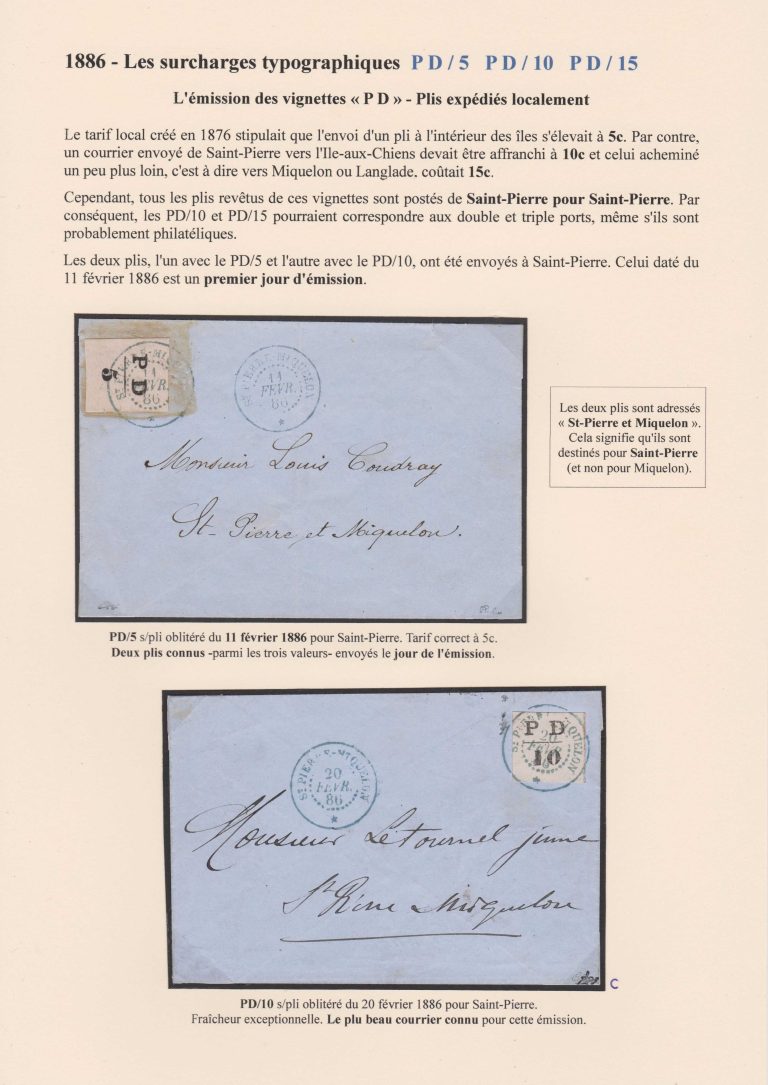 1886 - Les surcharges typographiques PD/5 PD/10 PD/15
L'émission des vignettes « P D » - Plis expédiés localement
Le tarif local créé en 1876 stipulait que l'envoi d'un pli à l'intérieur des îles s'élevait à 5c. Par contre,
un courrier envoyé de Saint-Pierre vers l'Ile-aux-Chiens devait être affranchi à 10c et celui acheminé
un peu plus loin, c'est à dire vers Miquelon ou Langlade, coûtait 15c.
Cependant, tous les plis revêtus de ces vignettes sont postés de Saint-Pierre pour Saint-Pierre. Par
conséquent, les PD/10 et PD/15 pourraient correspondre aux double et triple ports, même s'ils sont
probablement philatéliques.
Les deux plis, l'un avec le PD/5 et l'autre avec le PD/10, ont été envoyés à Saint-Pierre. Celui daté du
11 février 1886 est un premier jour d'émission.
P D
5
ST PIERRE-MIQUELON
11
FEVR.
86
ST PIERRE-MIQUELON
11
FEVR.
86
Monsieur Louis Coudray
St-Pierre et Miquelon.
Les deux plis sont adressés
« St-Pierre et Miquelon ».
Cela signifie qu'ils sont
destinés pour Saint-Pierre
(et non pour Miquelon).
PD/5 s/pli oblitéré du 11 février 1886 pour Saint-Pierre. Tarif correct à 5c.
Deux plis connus -parmi les trois valeurs- envoyés le jour de l'émission.
P D
10
ST PIERRE-MIQUELON
20
FEVR.
ST PIERRE-MIQUELON
20
FEVR.
86
Monsieur Letournel jeune
St Pierre Miquelon
C
PD/10 s/pli oblitéré du 20 février 1886 pour Saint-Pierre.
Fraîcheur exceptionnelle. Le plu beau courrier connu pour cette émission.